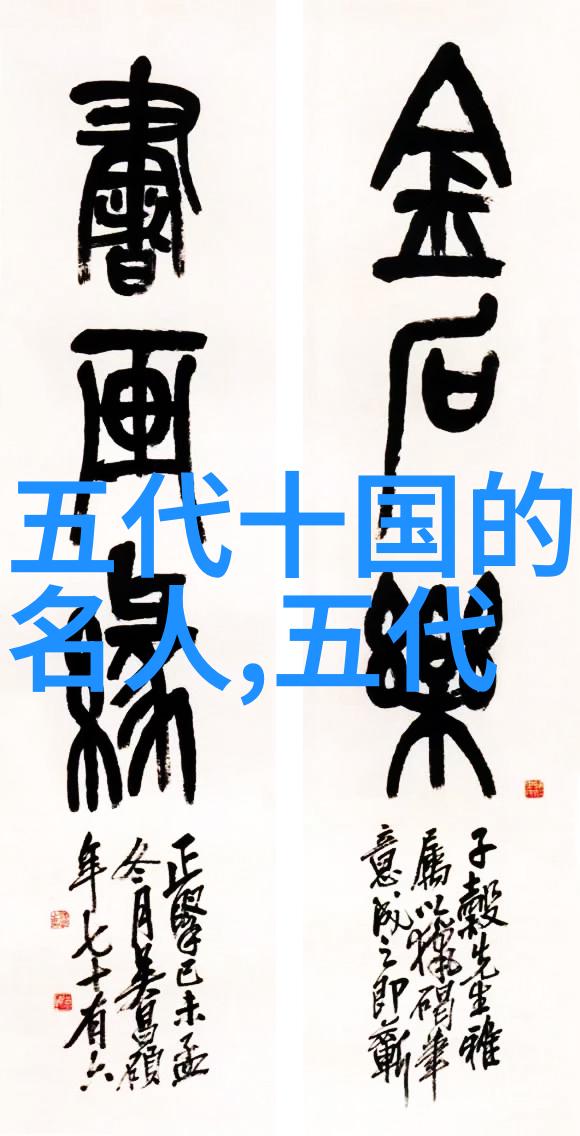 金石樂
書画緣
五代十国的
名人,五代
子穀先生雅
屬以獵碣筆
意成之即蘄
正 己未孟
冬月吳昌碩
年七十有六